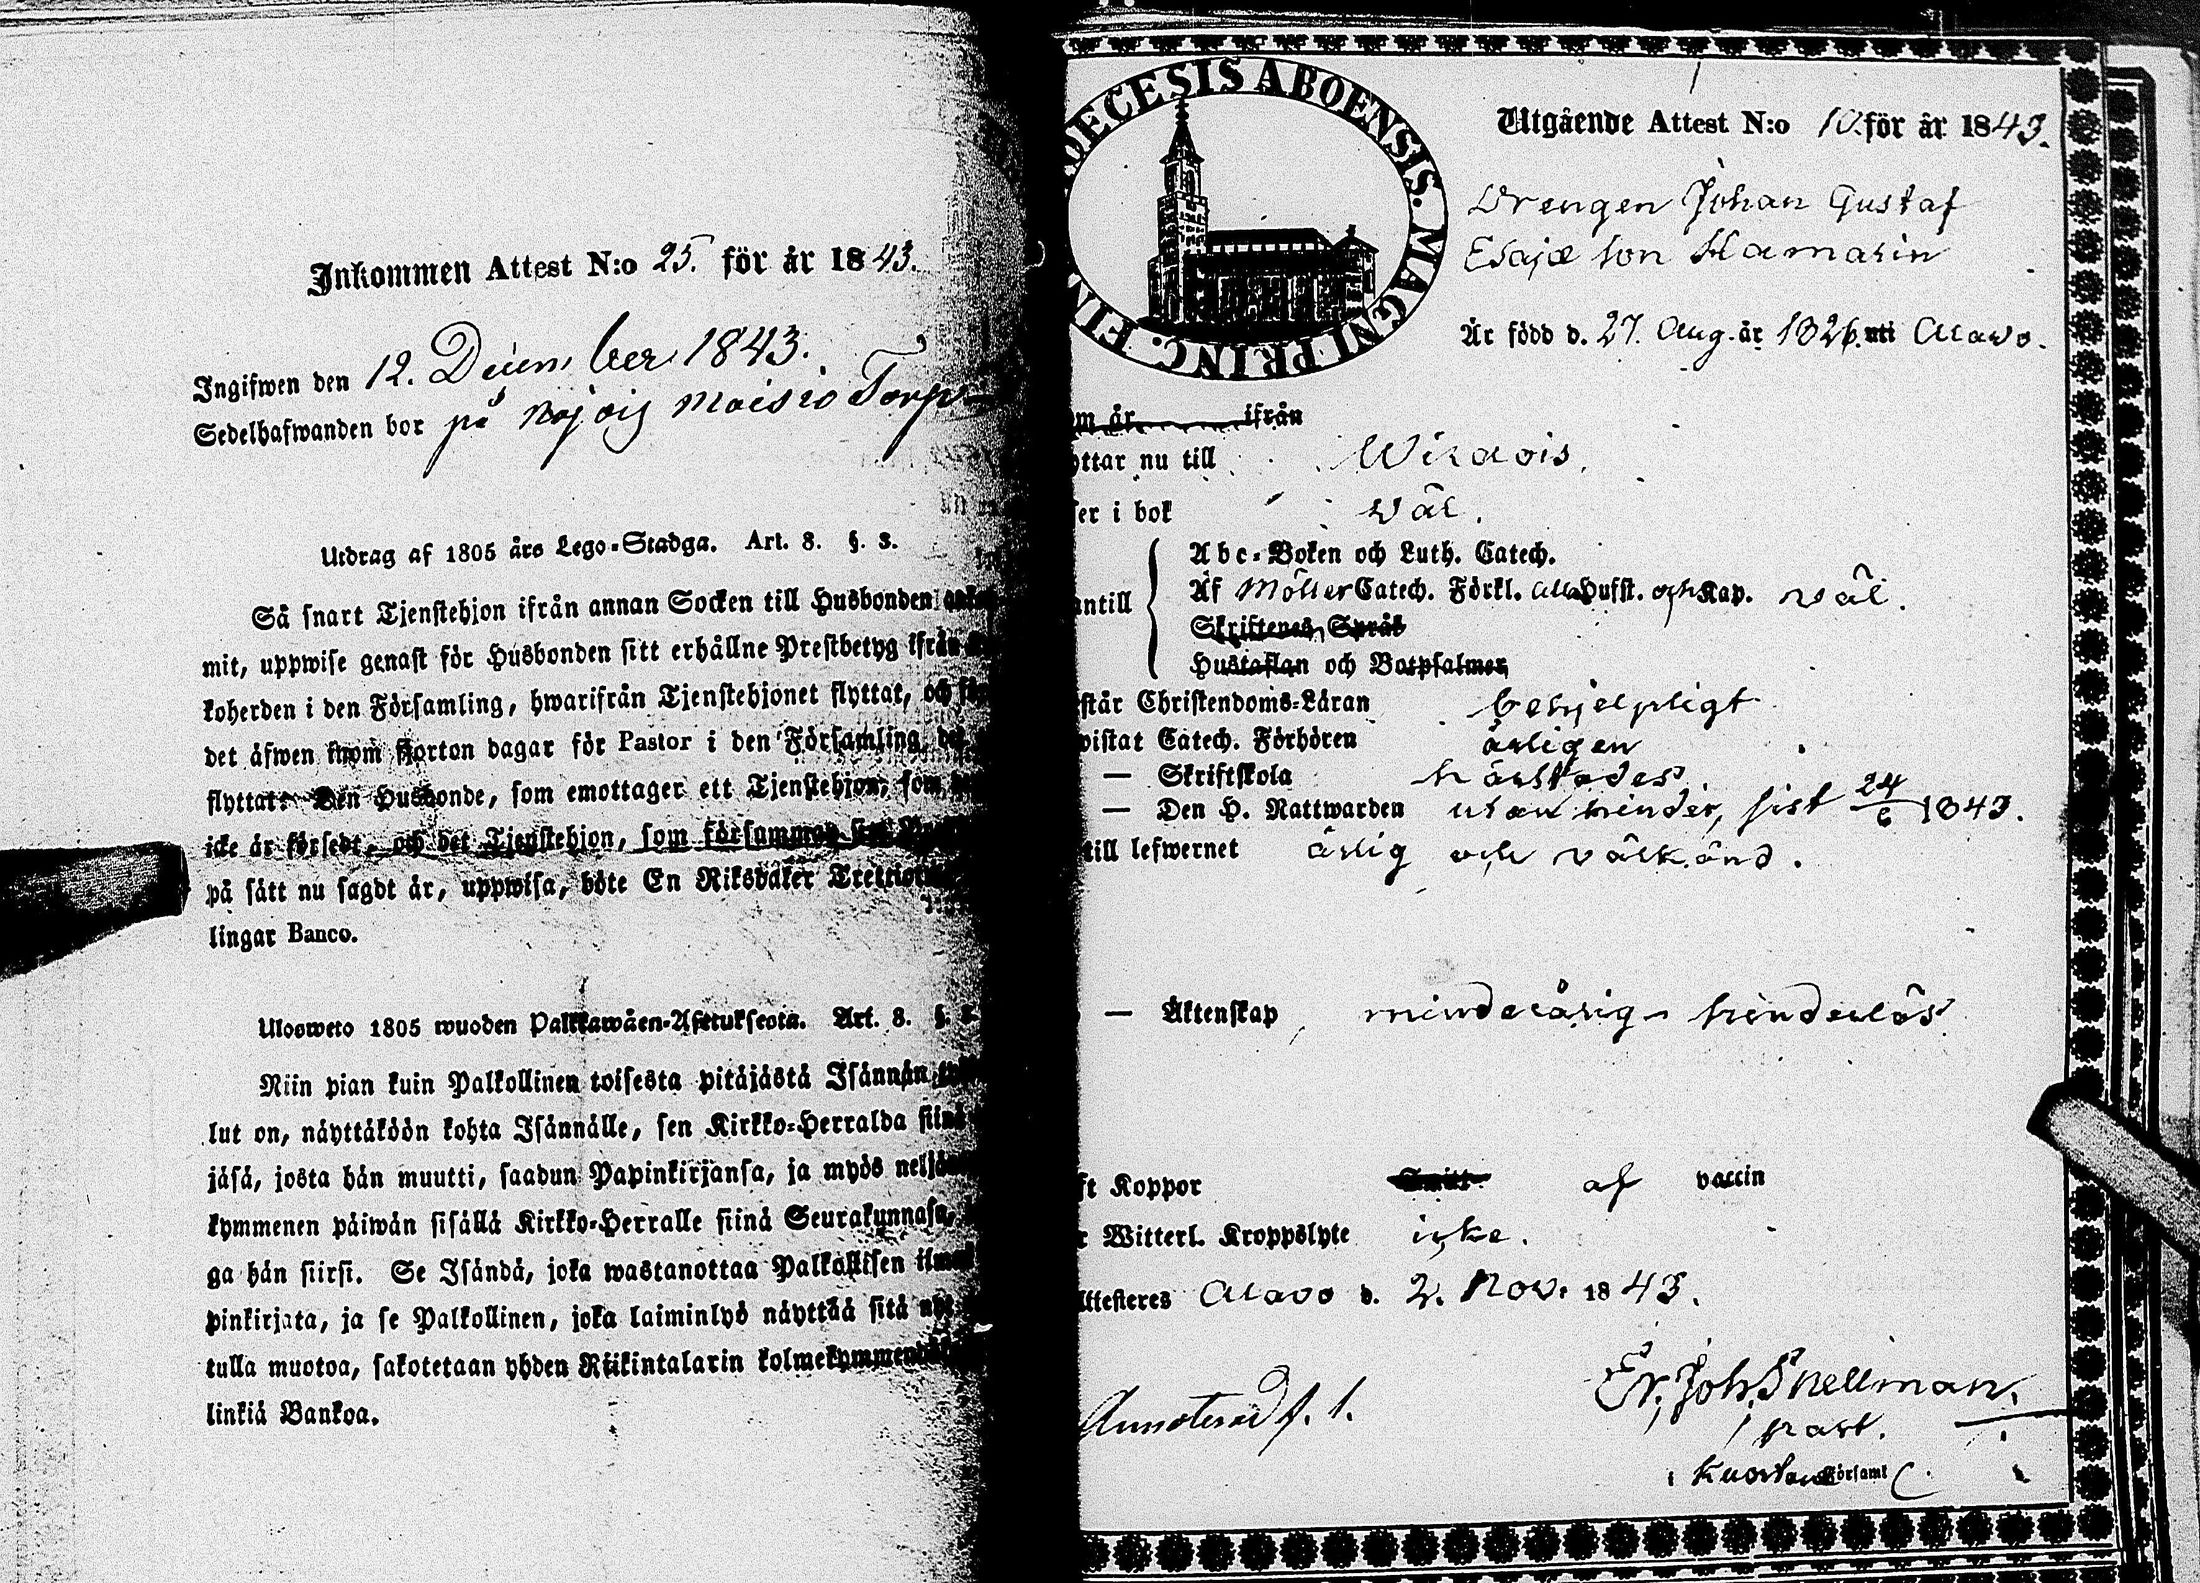 Inkommen Attest N:o 25. för år 1843.
Ingifwen den 12. December 1843.
Sedelhafwanden bor på Torp
Utdrag af 1805 års Lego-Stadga. Art. 8. §. 3.
Så snart Tjenstehjon ifrån annan Socken till Husbonden
mit, uppwise genast för Husbonden sitt erhållne Prestbetyg ifrån
koherden i den Församling, hwarifrån Tjenstehjonet flyttat, och
det äfwen inom fjorton dagar för Pastor i den Församling,
flyttat: Den Husbonde, som emottager ett Tjenstehjon, som
icke är försedt, och det Tjenstehjon, som försummar
på sätt nu sagdt är, uppwisa, böte En Riksdaler
lingar Banco.
Ulosweto 1805 wuoden Palkkawäen-Asetuksesta. Art. 8. §.
Niin pian kuin Palkollinen toisesta pitäjästä Isännän
lut on, näyttäköön kohta Isännälle, sen Kirkko-Herralda
jäsä, josta hän muutti, saadun Papinkirjansa, ja myös
kymmenen päiwän sisällä Kirkko-Herralle siinä Seurakunnasa,
ga hän siirsi. Se Isändä, joka wastanottaa Palkollisen
pinkirjata, ja se Palkollinen, joka laiminlyö näyttää sitä
tulla muotoa, sakotetaan yhden Riikintalarin
linkiä Bankoa.
DECESIS ABOENSIS. MAGNI PRINC. FIN
Utgående Attest N:o 10. för år 1843.
Drengen Johan Gustaf
Esajæ son Hamarin
Är född d. 27. Aug. år 1826. uti Alavo.
m år ifrån
ttar nu till Wirdois.
er i bok väl.
antill
Abc-Boken och Luth. Catech.
Af Möller Catech. Förkl. alla Hufst. och Kap. väl.
Skriftenes Språk
Hustaflan och Botpsalmer
står Christendoms-Läran behjelpligt
istat Catech. Förhören årligen
— Skriftskola härstädes
— Den H. Nattwarden utan hinder, sist 24/6 1843.
till lefwernet ärlig och välkänd.
— Äktenskap minderårig - hinderlös
ft Koppor af vaccin
r Witterl. Kroppslyte icke.
Attesteres Alavo d. 2. Nov. 1843.
Er. Joh. Snellman.
past.
Annoterad f. 1.
Kuortane Församl